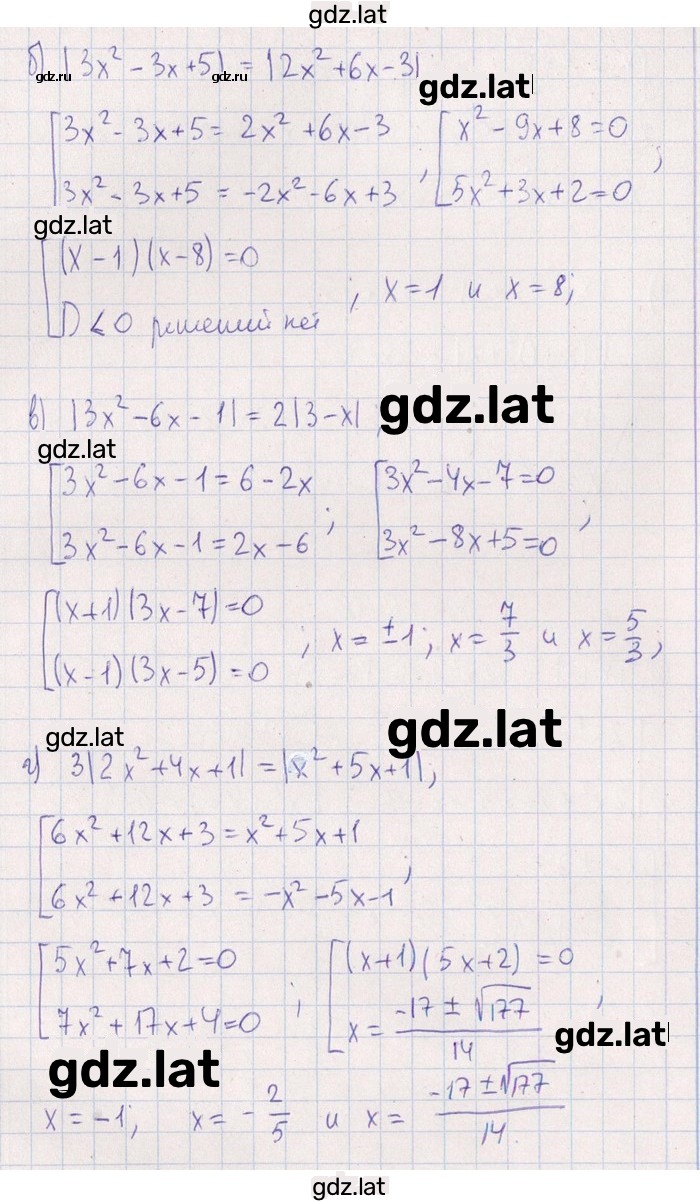 gdz.lat
б) |3x² - 3x + 5| = |2x² + 6x - 3|
gdz.ru gdz.ru gdz.lat
[3x² - 3x + 5 = 2x² + 6x - 3 [x² - 9x + 8 = 0
3x² - 3x + 5 = -2x² - 6x + 3 , 5x² + 3x + 2 = 0 ;
gdz.lat
[(x - 1)(x - 8) = 0
D < 0 решений нет ; x = 1 и x = 8;
в) |3x² - 6x - 1| = 2|3 - x| ,
gdz.lat
gdz.lat
[3x² - 6x - 1 = 6 - 2x [3x² - 4x - 7 = 0
3x² - 6x - 1 = 2x - 6 ; 3x² - 8x + 5 = 0 ;
[(x + 1)(3x - 7) = 0
(x - 1)(3x - 5) = 0 ; x = ±1; x = 7/3 и x = 5/3;
gdz.lat
gdz.lat
г) 3|2x² + 4x + 1| = |x² + 5x + 1|,
[6x² + 12x + 3 = x² + 5x + 1
6x² + 12x + 3 = -x² - 5x - 1 ,
[5x² + 7x + 2 = 0 [(x + 1)(5x + 2) = 0
7x² + 17x + 4 = 0 ; x = (-17 ± √177)/14 ;
gdz.lat
gdz.lat
x = -1; x = -2/5 и x = (-17 ± √177)/14
gdz.lat